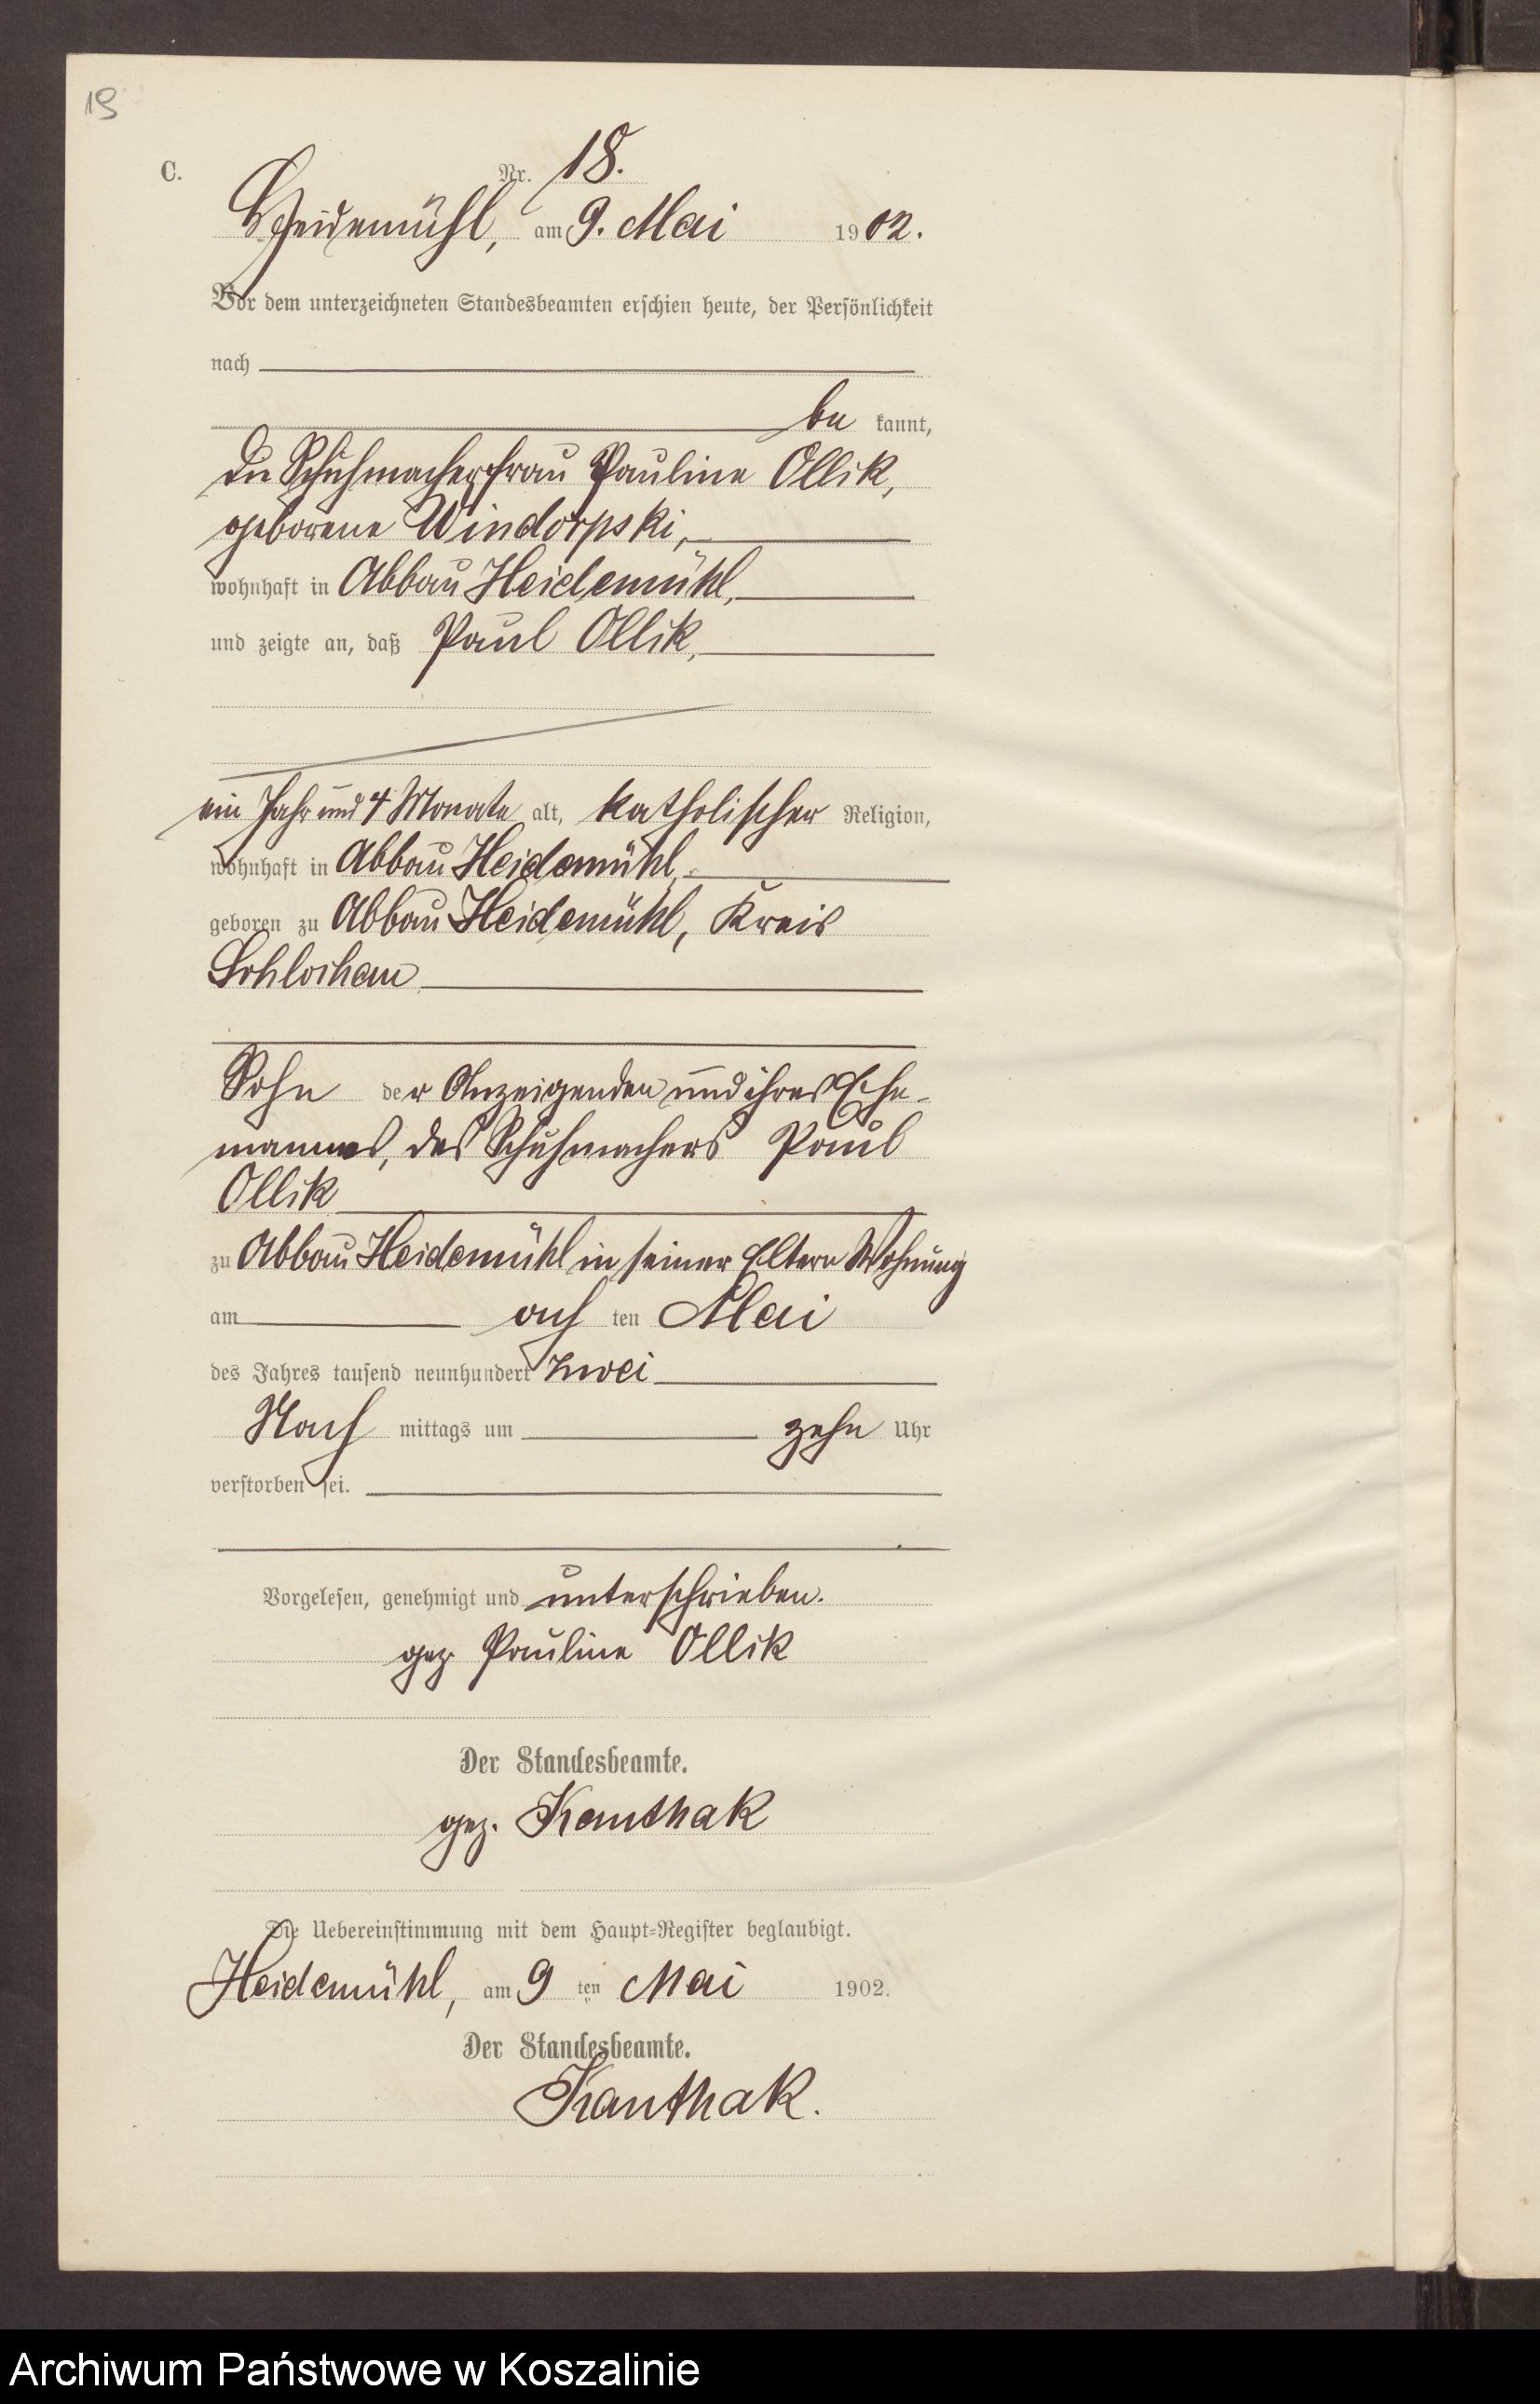 19
C.
Nr. 18.
Heidemühl, am 9. Mai 1902.
Vor dem unterzeichneten Standesbeamten erschien heute, der Persönlichkeit
nach
be kannt,
die Schuhmacherfrau Pauline Ollik,
geborene Windorpski,
wohnhaft in Abbau Heidemühl,
und zeigte an, daß Paul Ollik,
ein Jahr und 4 Monate alt, katholischer Religion,
wohnhaft in Abbau Heidemühl,
geboren zu Abbau Heidemühl, Kreis
Schlochau
Sohn der Anzeigenden und ihres Ehe-
mannes, des Schuhmachers Paul
Ollik
zu Abbau Heidemühl in seiner Eltern Wohnung
am ach ten Mai
des Jahres tausend neunhundert zwei
Nach mittags um zehn Uhr
verstorben sei.
Vorgelesen, genehmigt und unterschrieben.
gez. Pauline Ollik
Der Standesbeamte.
gez. Kanthak
Die Uebereinstimmung mit dem Haupt-Register beglaubigt.
Heidemühl, am 9 ten Mai 1902.
Der Standesbeamte.
Kanthak.
Archiwum Państwowe w Koszalinie